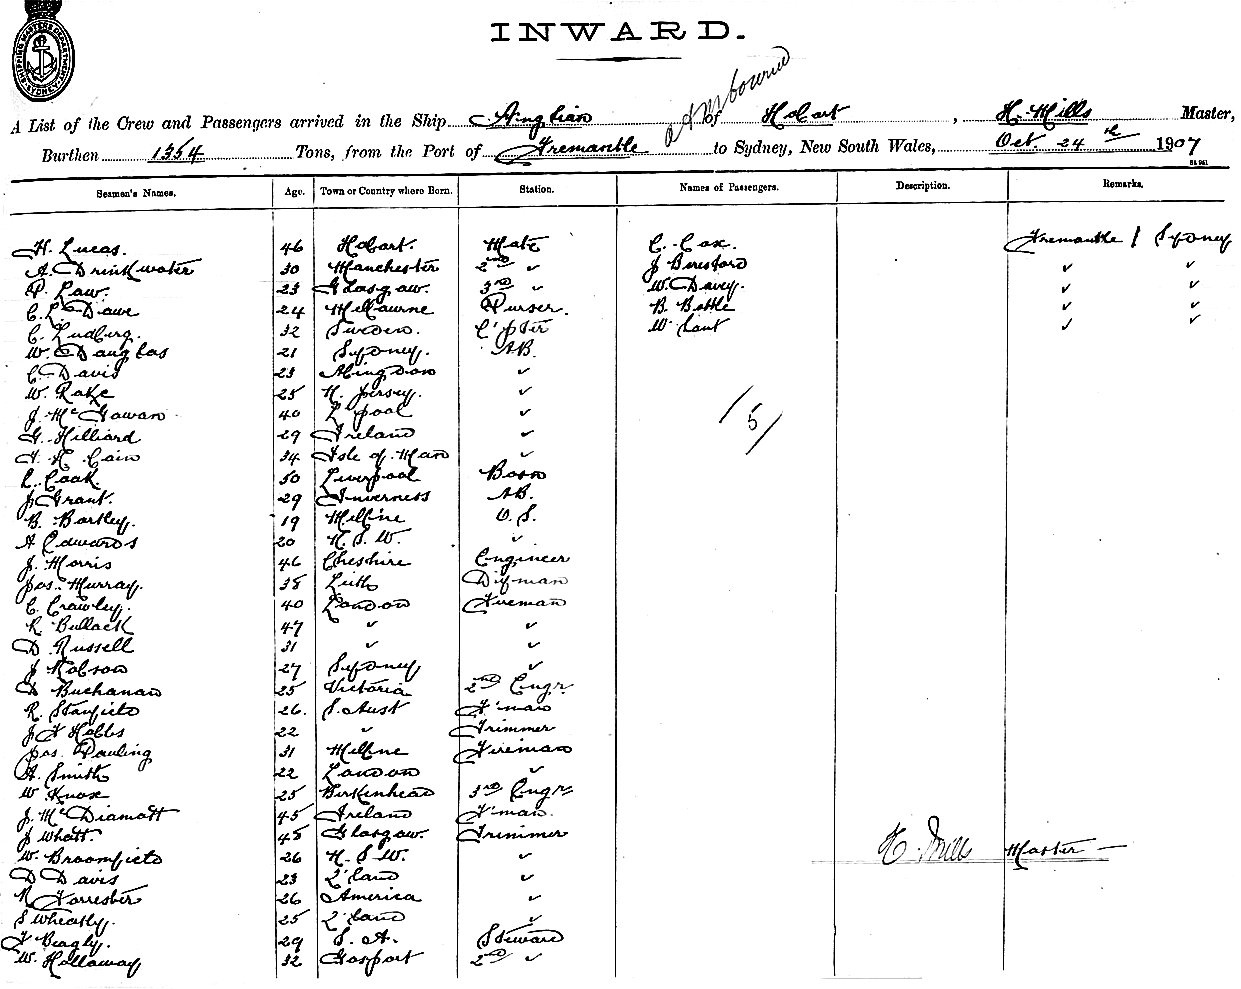 INWARD.
SHIPPING MASTER'S DEPARTMENT SYDNEY
A List of the Crew and Passengers arrived in the Ship of Hobart, H. Mills Master,
Burthen 1354 Tons, from the Port of Fremantle to Sydney, New South Wales, Oct. 24th 1907
Seamen's Names. Age. Town or Country where Born. Station. Names of Passengers. Description. Remarks.
H. Lucas. 46 Hobart. Mate C. Cox. Fremantle / Sydney
A. Drinkwater 30 Manchester 2nd ✓ J Beresford ✓ ✓
P. Law. 23 Glasgow. 3rd ✓ W. Davey. ✓ ✓
24 Melbourne Purser. B. Bottle ✓ ✓
C. Ludberg. 32 Sweden. C'pter W. ✓ ✓
W. Douglas 21 Sydney. AB.
C. Davis 23 Abingdon ✓
W. Rake 25 N. Jersey. ✓
J. McGowan 40 L'pool ✓
G. Hilliard 29 Ireland ✓
Cain 34 Isle of Man ✓
C. Cook 50 Liverpool Bosn
J Grant. 29 Inverness AB.
B. Bartley. 19 Melbne O.S.
A Edwards 20 N.S.W. ✓
J. Morris 46 Cheshire Engineer
Jas. Murray. 38 Leith
C. Crawley. 40 London Fireman
R. Bullock 47 ✓ ✓
D. Russell 31 ✓ ✓
J Robson 27 Sydney ✓
D Buchanan 25 Victoria 2nd Engr.
R. Stanfield 26. S. Aust F'man
J F Hobbs 22 ✓ Trimmer
Jas. Pauling 31 Melbne Fireman
A. Smith 22 London ✓
W. Knox 25 Birkenhead 3rd Engr
J. McDiamott 45 Ireland F'man.
J Whatt. 48 Glasgow. Trimmer
W. Broomfield 26 N.S.W. ✓
D Davis 23 Q'land ✓
Forrester 26 America ✓
S Wheatly. 25 Q'land ✓
F Beagly. 29 S. A. Steward
W. Hollaway 32 Gosport 2nd ✓
/5/
H. Mills Master